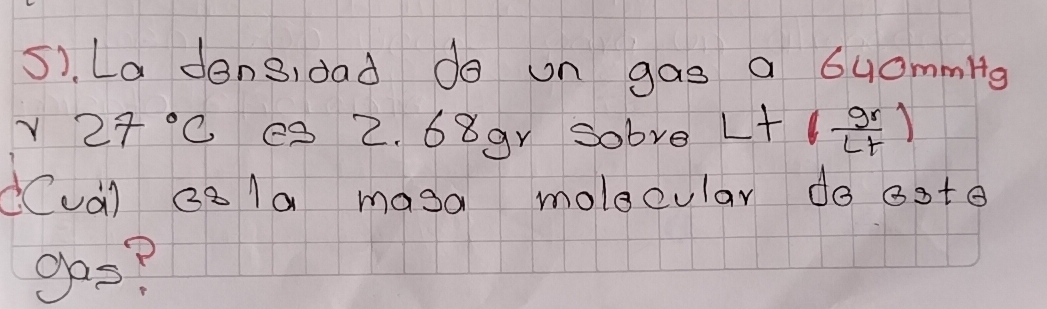 5). La densidad de un gas a 640mmHg
y 27 °C es 2.68gr sobre Lt (gr/Lt)
¿Cuál es la masa molecular de este
gas?